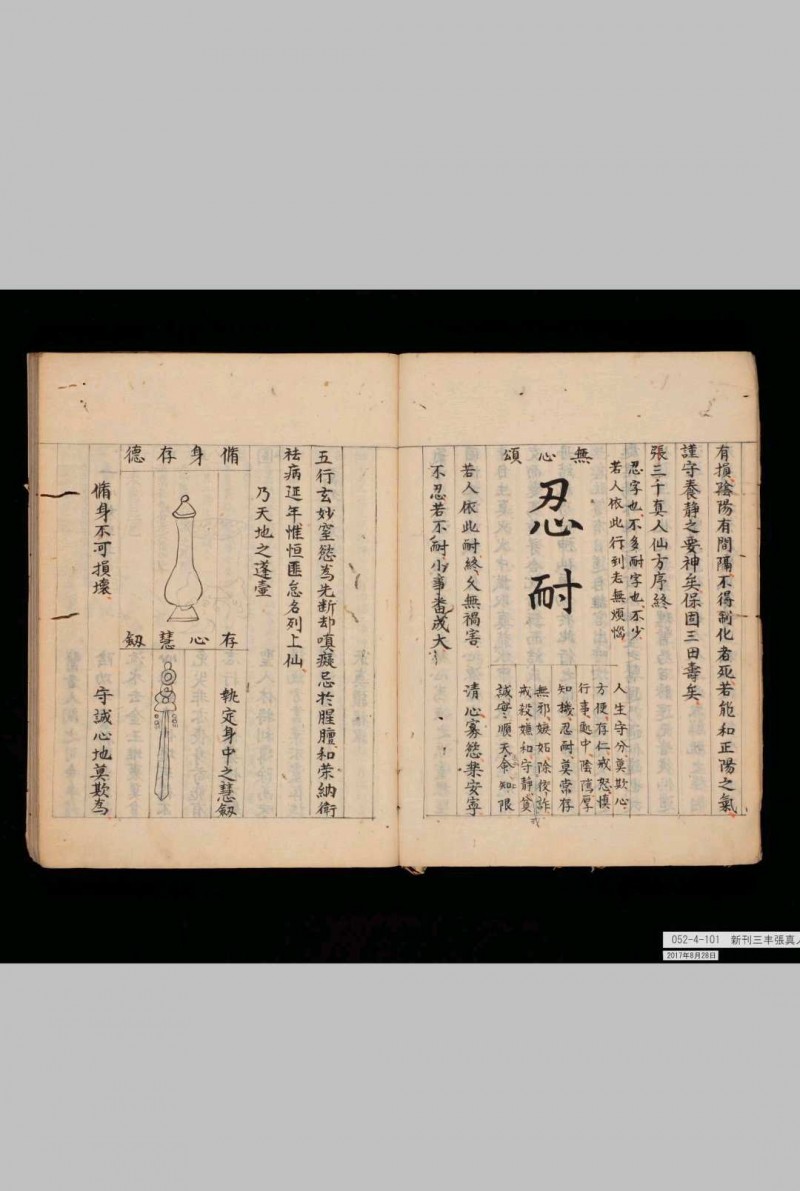 有損陰陽有間隔不得制化者死若能和正陽之氣
謹守養靜之要神矣保固三田壽矣
張三丰真人仙方序終
忍字也不多耐字也不少
若人依此行到老無煩惱
無心頌
忍耐
人生守分莫欺心
方便存仁戒怒慎
行事、中陰隲厚
知機忍耐莫常存
無邪嫉妬除狡詐
戒殺嬔和守靜貧
誠安順天命知限
若人依此耐終久無禍害
清心寡慾樂安寧
不忍若不耐小事番成大
五行玄妙窒慾為先断却嗔癡忌於腥膻和榮納衛
祛病延年惟恒匪怠名列上仙
乃天地之蓬壺
脩身存德
存心慧劔
執定身中之慧劔
脩身不可損壞
守誠心地莫欺為
052-4-101 新刊三丰張真人
2017年8月28日